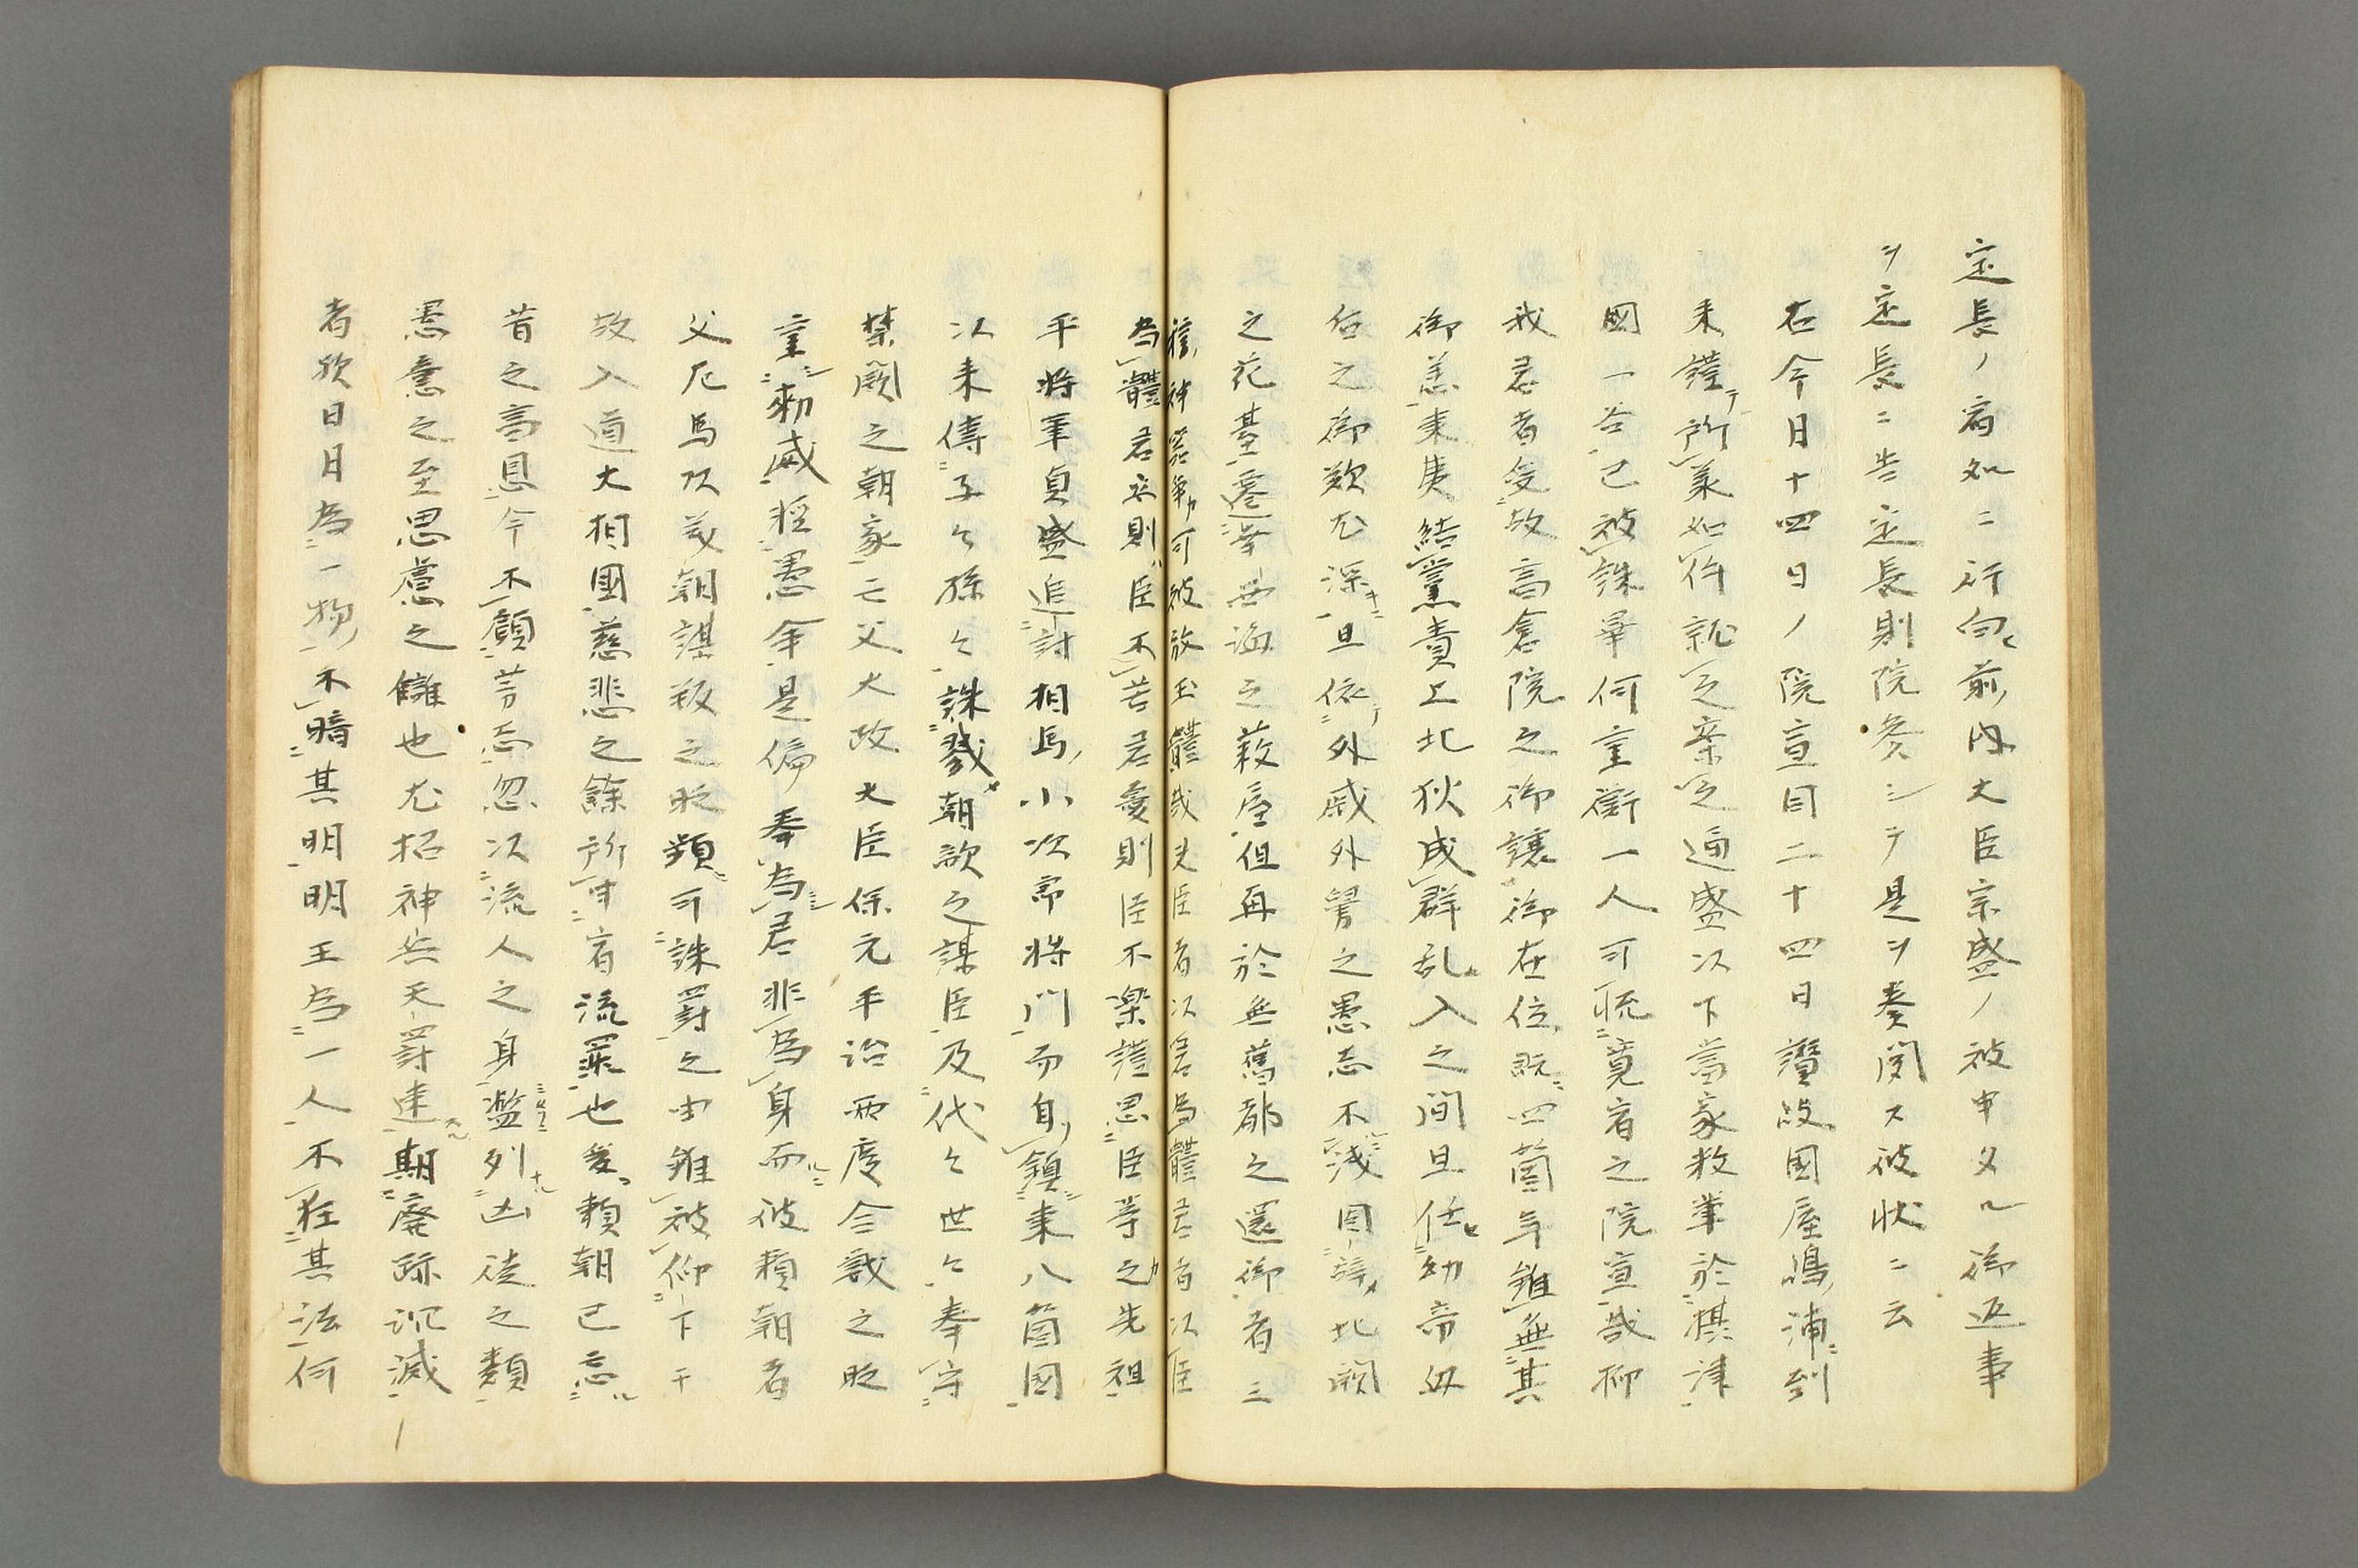 定長ノ宿如ニ所向前内大臣宗盛ノ被申タル御返事
ヲ定長ニ告定長則院参シテ是ヲ奏聞ス彼状ニ云
右今月十四日ノ院宣同二十四日讃岐国屋嶋浦到
来謹テ所承如件就之案之通盛以下当家数輩於摂津
國一谷已被誅畢何重衡一人可悦寛宥之院宣哉抑
我君者受故高倉院之御譲御在位既四箇年雖無其
御恙東夷結黨責上北狄成群乱入之間且任幼帝母
后之御歎尤深且依外戚外舅之愚志不浅固辞北闕
之花臺遷幸西海之薮屋但再於無舊都之還御者三
種神器争可被放玉體哉夫臣者以君為體君者以臣
為體君安則臣不苦君憂則臣不楽謹思臣等之先祖
平将軍貞盛追討相馬小次郎将門而自鎮東八箇國
以来傳子々孫々誅戮朝敵之謀臣及代々世々奉守
禁闕之朝家亡父太政大臣保元平治両度合戦之時
重勅威軽愚命是偏奉為君非為身而彼頼朝者
父左馬頭義朝謀叛之時頻可誅罰之由雖被仰下于
故入道大相國慈悲之餘所申宥流罪也爰頼朝已忘
昔之高恩今不顧芳志忽以流人之身濫列凶徒之類
愚意之至思慮之讎也尤招神兵天罰速期廃跡沉滅
者歟日月為一物不暗其明明王為一人不狂其法何